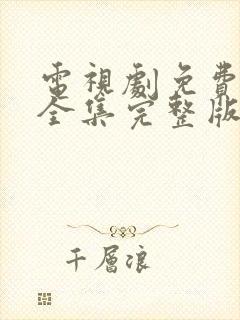 電視劇免費
全集完整版
千層浪